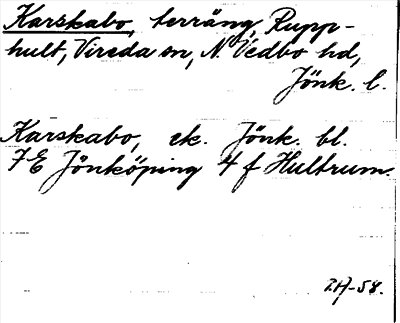 Karskabo, terräng, Rupp-
hult, Vireda sn, N. Vedbo hd,
Jönk. l.
Karskabo, ek. Jönk. bl.
7E Jönköping 4 f Hultrum.
-58.